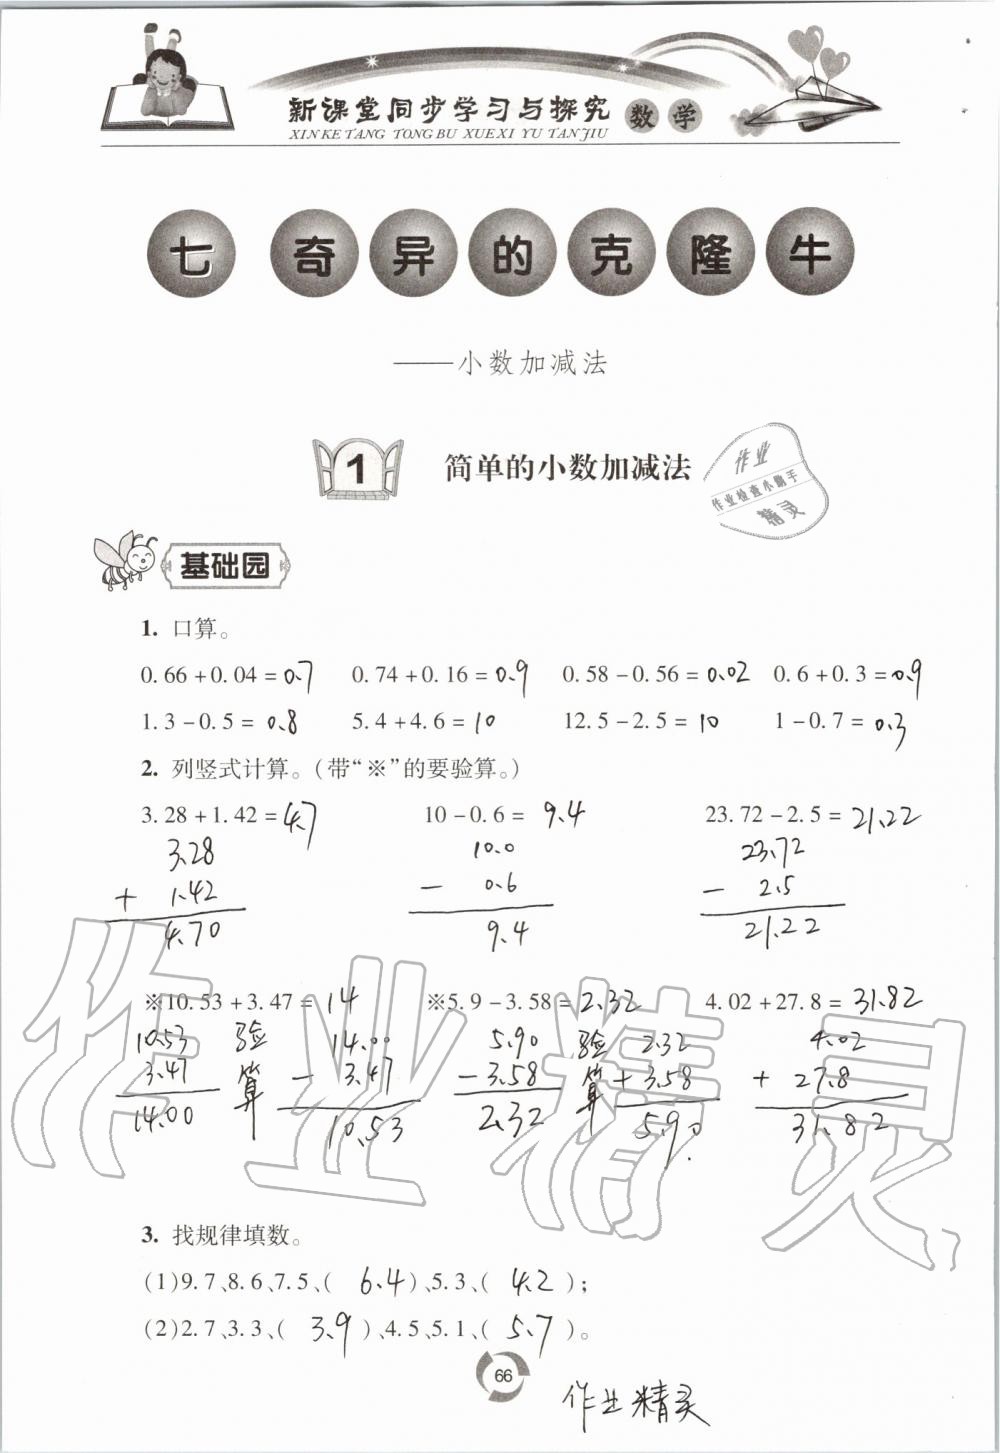 新课堂同步学习与探究 数学
XINKETANG TONGBU XUEXI YU TANJIU
七 奇异的克隆牛
——小数加减法
1 简单的小数加减法
作业
作业检查小助手
精灵
基础园
1. 口算。
0.66+0.04=0.7 0.74+0.16=0.9 0.58-0.56=0.02 0.6+0.3=0.9
1.3-0.5=0.8 5.4+4.6=10 12.5-2.5=10 1-0.7=0.3
2. 列竖式计算。(带“※”的要验算。)
3.28+1.42=4.7 10-0.6=9.4 23.72-2.5=21.22
3.28 10.0 23.72
+ 1.42 - 0.6 - 2.5
4.70 9.4 21.22
※10.53+3.47=14 ※5.9-3.58=2.32 4.02+27.8=31.82
10.53 验 14.00 5.90 验 2.32 4.02
3.47 算 - 3.47 -3.58 算 +3.58 + 27.8
14.00 10.53 2.32 5.90 31.82
3. 找规律填数。
(1)9.7、8.6、7.5、( 6.4 )、5.3、( 4.2 );
(2)2.7、3.3、( 3.9 )、4.5、5.1、( 5.7 )。
66
作业精灵
作业精灵